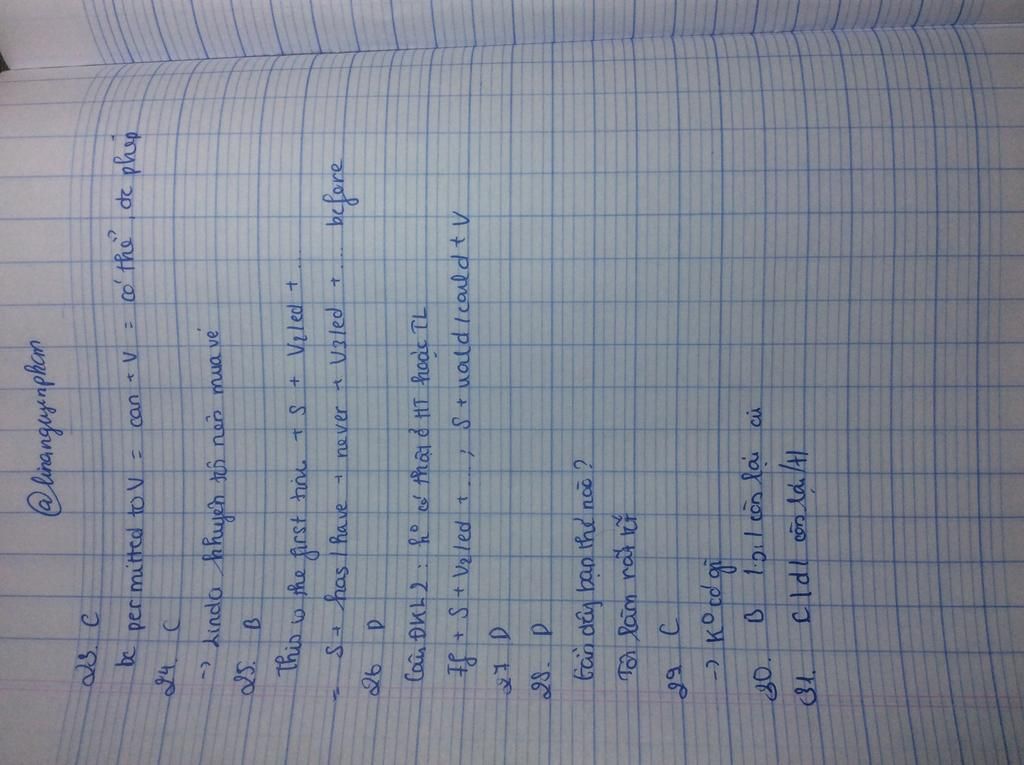 @linanguyenphan
23. C
be permitted to V = can + V = có thể, đc phép
24. C
-> Linda khuyên tôi nên mua vé
25. B
This is the first time + S + V2/ed + ...
= S + has / have + never + V3/ed + ... before
26 D
Câu ĐKL2: k° có thật ở HT hoặc TL
If + S + V2/ed + ...; S + would / could + V
27 D
28. D
Gần đây bạn thế nào?
Tôi làm rất tốt
29 C
-> K° có gì
30. B /ɔ:/ còn lại
31. C /d/ còn lại /t/